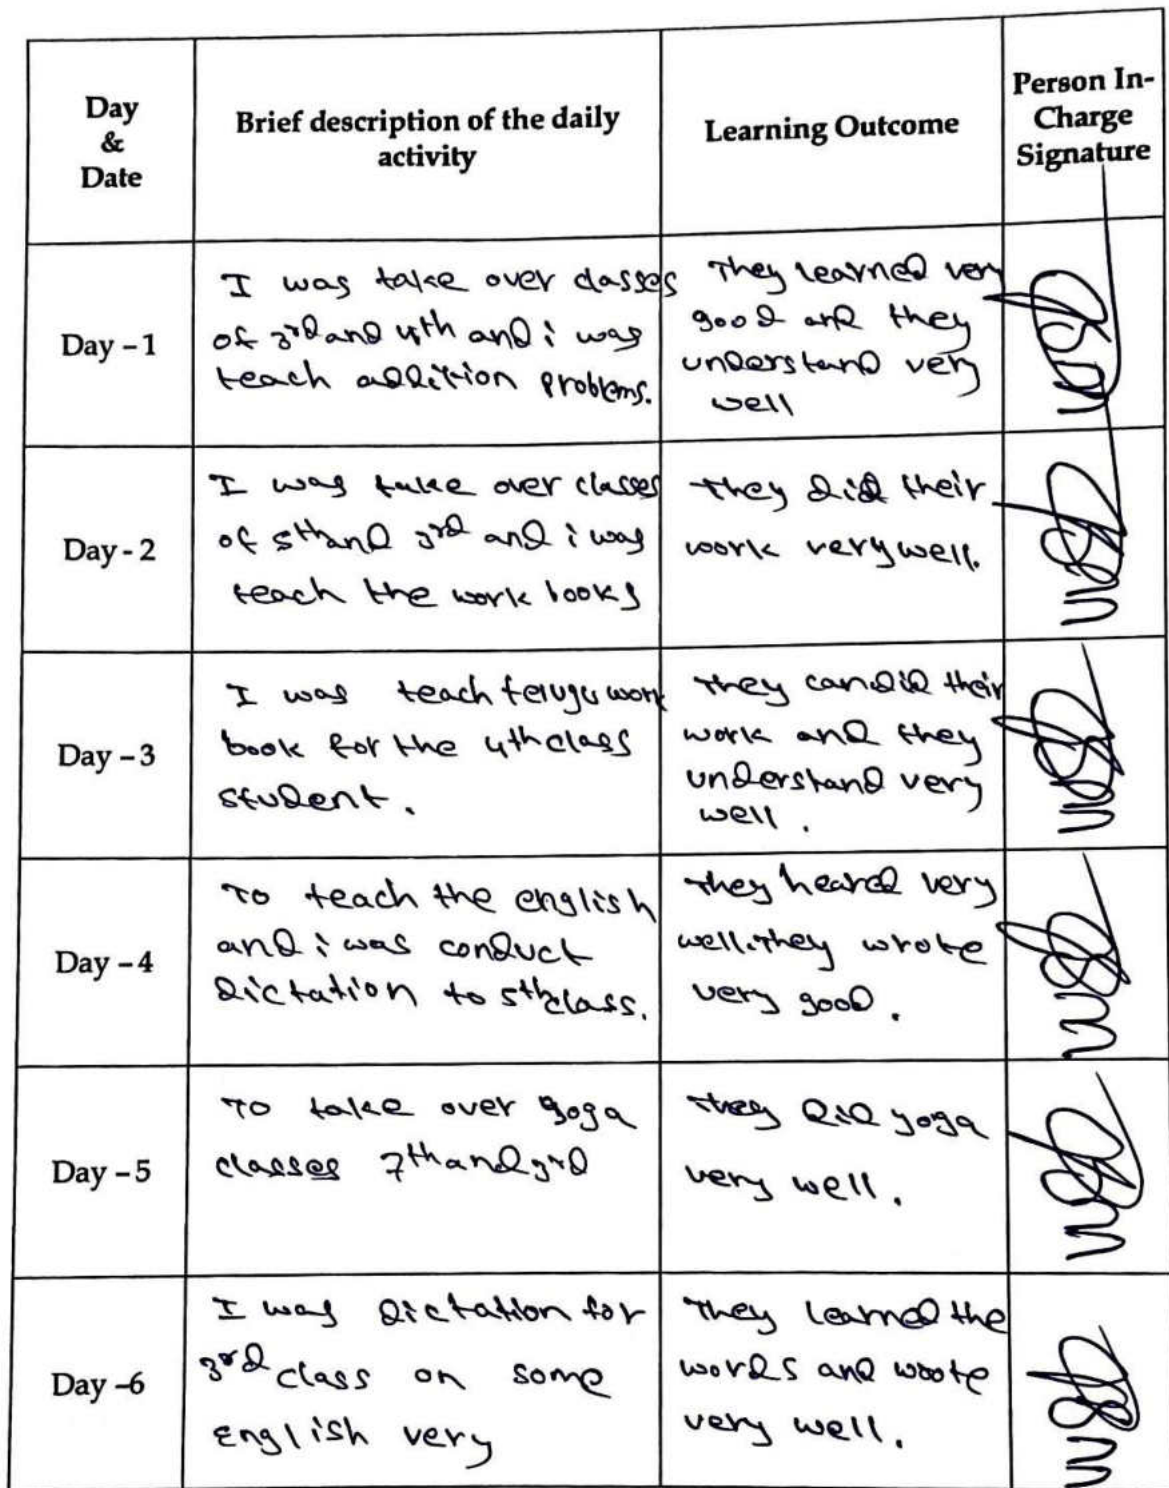 Day
&
Date
Brief description of the daily
activity
Learning Outcome
Person In-
Charge
Signature
Day – 1
I was take over classes
of 3rd and 4th and i was
teach addition problems.
They learned very
good and they
understand very
well
Day - 2
I was take over classes
of 5th and 3rd and i was
teach the work books
They did their
work very well.
Day – 3
I was teach telugu work
book for the 4th class
student.
They can did their
work and they
understand very
well.
Day – 4
To teach the english
and i was conduct
dictation to 5th class.
They heared very
well. They wrote
very good.
Day – 5
To take over yoga
classes 7th and 3rd
They did yoga
very well.
Day –6
I was dictation for
3rd class on some
English very
They learned the
words and wrote
very well.